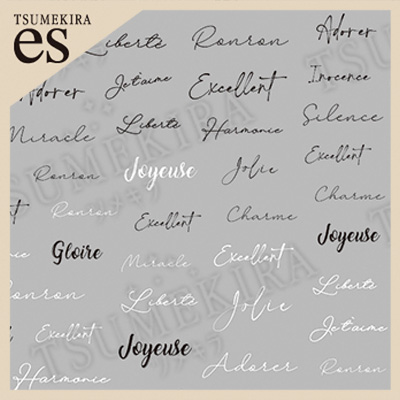 TSUMEKIRA
es
Liberté Ronron Adorer
Adorer Je t'aime Excellent Inocence
Miracle Liberté Harmonie Silence
Ronron Joyeuse Jolie Excellent
Ronron Excellent Charme Charme
Gloire Miracle Excellent Joyeuse
Ronron Liberté Jolie Liberté
Excellent Joyeuse Je t'aime
Harmonie Adorer Ronron
TSUMEKIRA
TSUMEKIRA
TSUMEKIRA